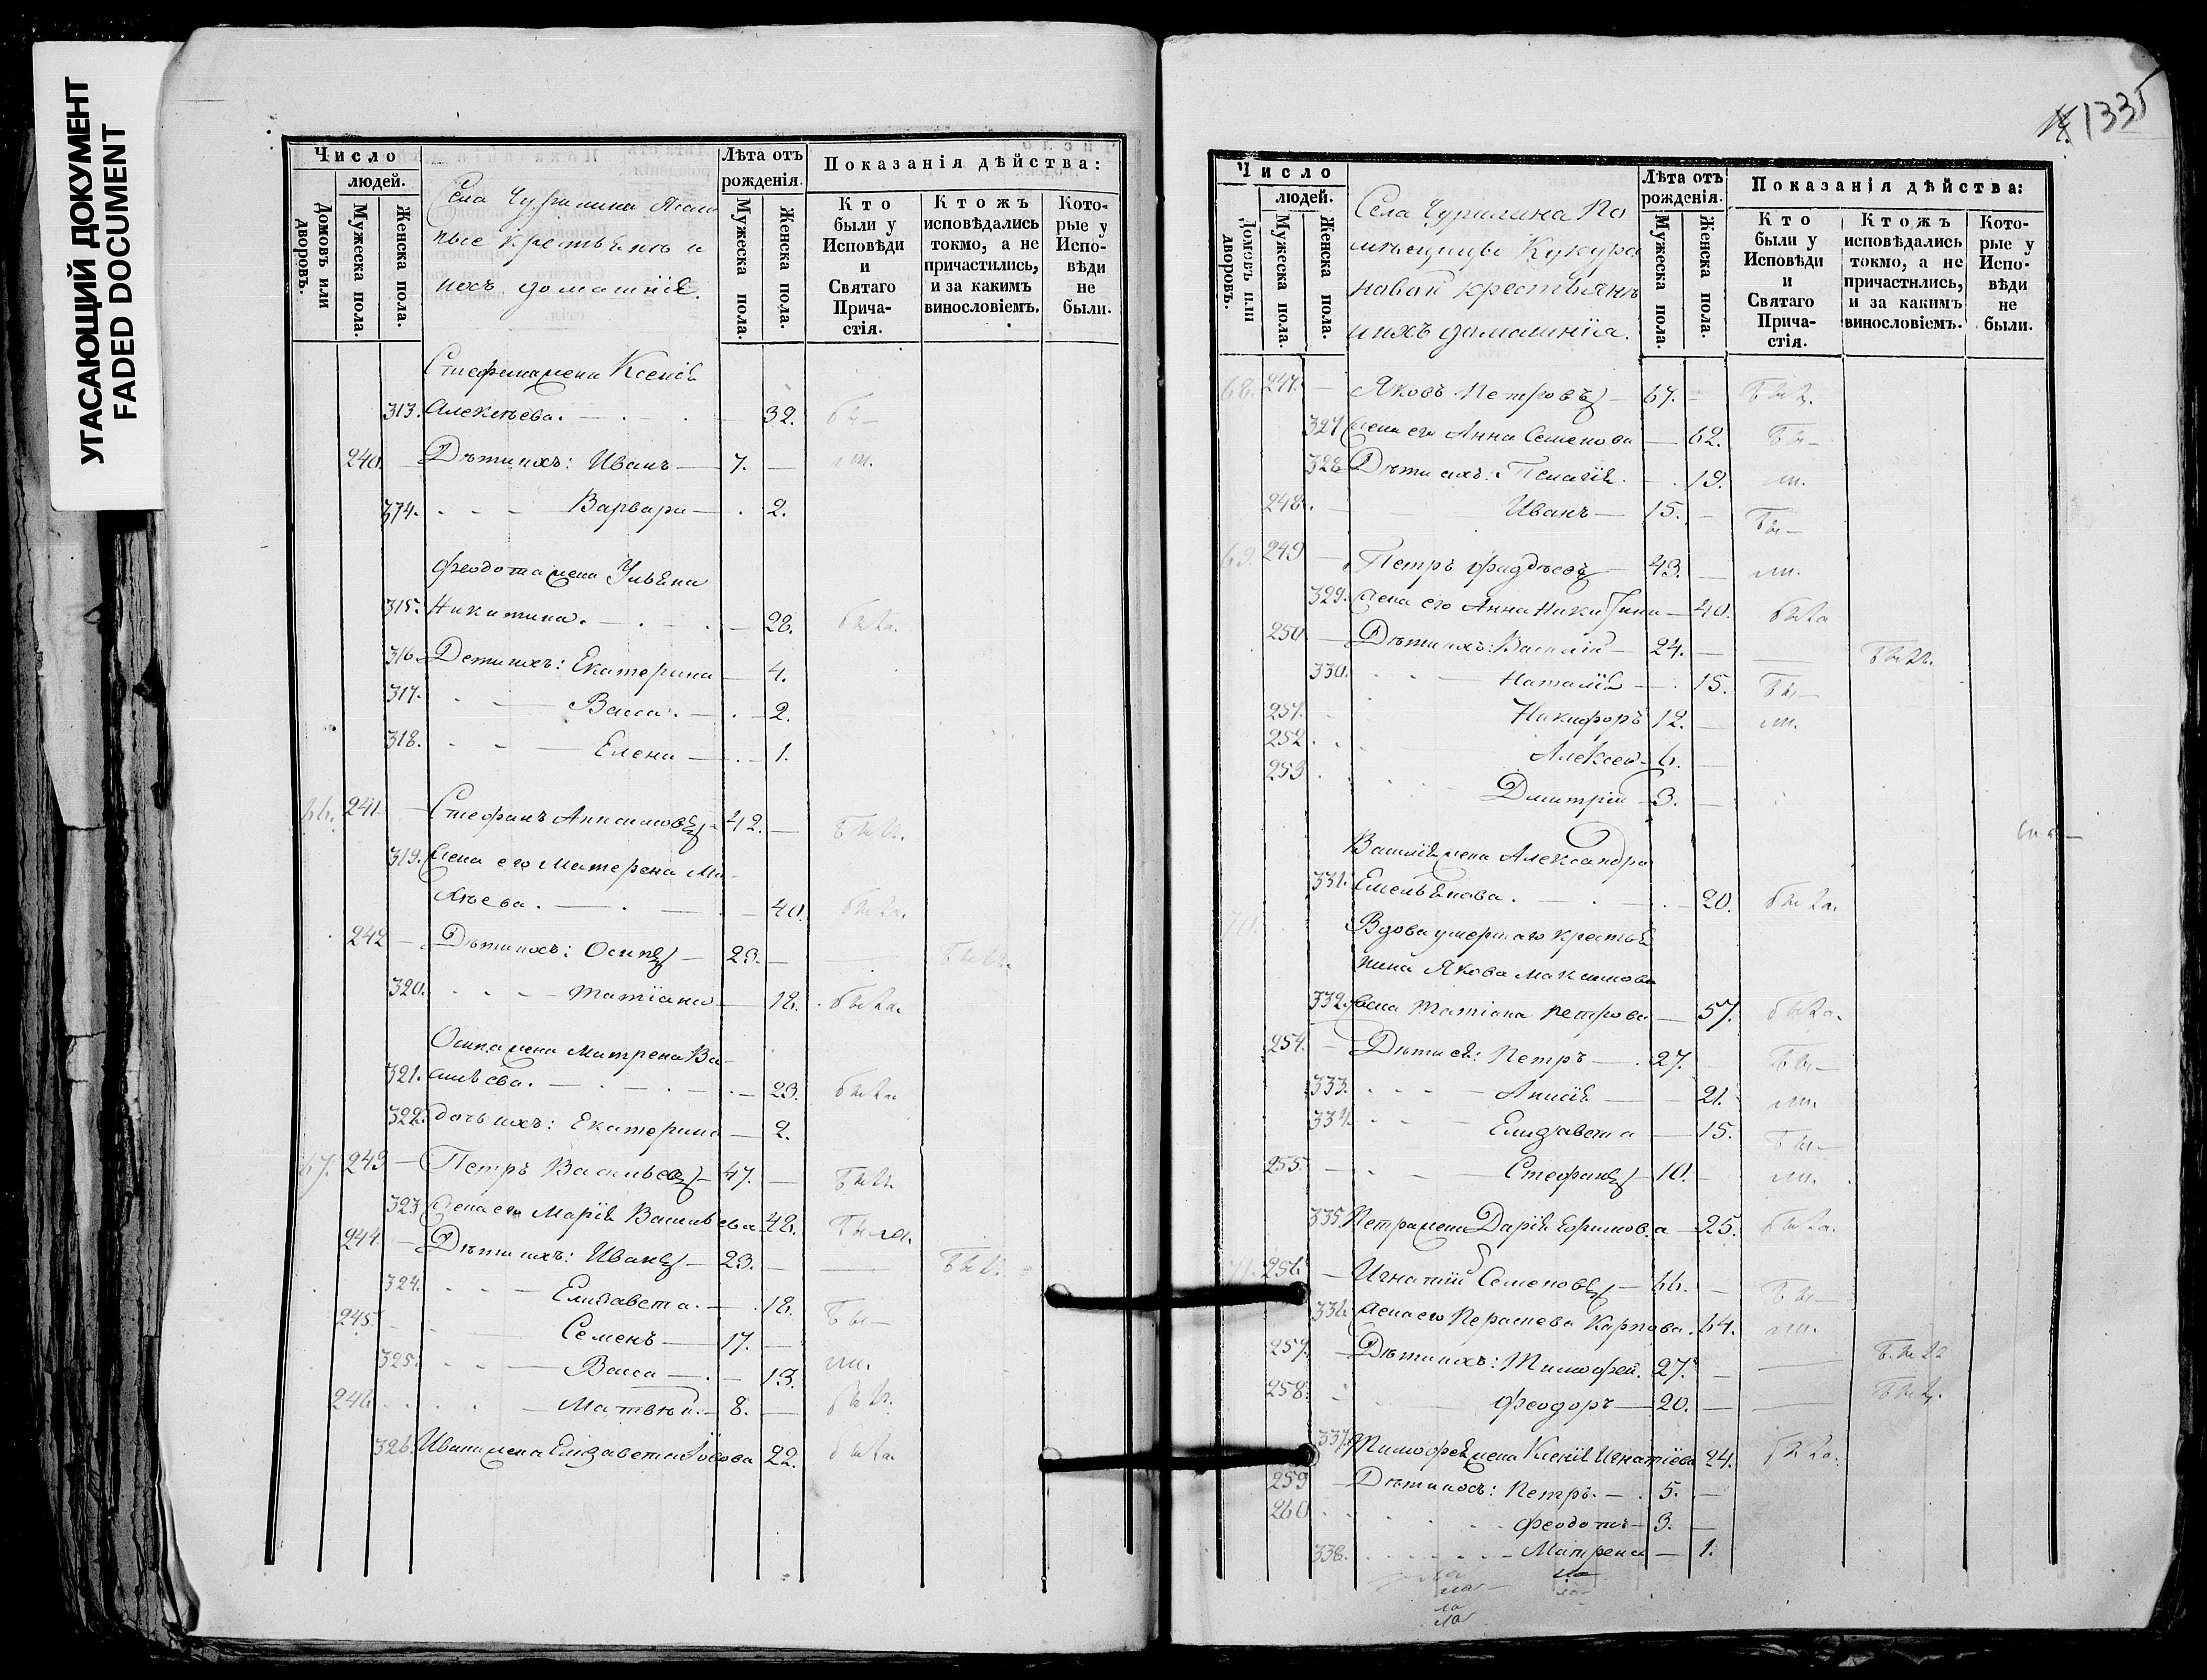 УГАСАЮЩИЙ ДОКУМЕНТ
FADED DOCUMENT
Число
людей.
Домовъ или дворовъ.
Мужеска пола.
Женска пола.
Села Чурилина
крестьяне и
ихъ домашнія.
Лѣта отъ рожденія.
Мужеска пола.
Женска пола.
Показанія дѣйства:
Кто были у Исповѣди и Святаго Причастія.
Ктожъ исповѣдались токмо, а не причастились, и за какимъ винословіемъ.
Которые у Исповѣди не были.
Стефана жена Ксенія
313. Алексѣева. 32. бы-
240. Дѣти ихъ: Иванъ 7.
314. Варвара 2.
Феодота жена Ульяна
315. Никитина. 28. была.
316. Дети ихъ: Екатерина 4.
317. Васса. 2.
318. Елена 1.
66. 241. Стефанъ 42. былъ.
319. Жена его Матерена Ма-
кѣева. 40. была.
242 Дѣти ихъ: Осипъ 23. былъ.
320. Татіана 18. была.
Осипа жена Матрена Ва-
321. сильева. 23. была
322. дочь ихъ: Екатерина 2.
67. 243 Петръ Васильевъ 47. былъ.
323 Жена его Марія Васильева 48. была.
244 Дѣти ихъ: Иванъ 23. былъ.
324. Елизавета. 18. бы-
245. Семенъ 17.
325. Васса 13. ли.
246. Матвѣй. 8. былъ.
326. Ивана жена Елизавета Іовова 22. была.
1335
Число
людей.
Домовъ или дворовъ.
Мужеска пола.
Женска пола.
Села Чурилина По
мѣщицы Кукура
новой крестьяне
и ихъ домашнія.
Лѣта отъ рожденія.
Мужеска пола.
Женска пола.
Показанія дѣйства:
Кто были у Исповѣди и Святаго Причастія.
Ктожъ исповѣдались токмо, а не причастились, и за какимъ винословіемъ.
Которые у Исповѣди не были.
68. 247. Яковъ Петровъ 67. былъ.
327 Жена его Анна Семенова 62. бы-
328 Дѣти ихъ: Пелагія. 19. ли.
248. Иванъ 15. бы-
69. 249 Петръ Фадѣевъ 43. ли.
329. Жена его Анна Никитина 40. была
250 Дѣти ихъ: Василій 24. былъ.
330. Наталія 15. бы-
251. Никифоръ 12. ли.
252. Алексей 6.
253. Дмитрій 3.
Василія жена Александра
331. Емельянова. 20. была.
70. Вдова умершаго крестья
нина Якова Максимова
332. жена Татіана Петрова 57. была.
254. Дѣти ея: Петръ 27. бы-
333. Анисія 21. ли.
334. Елизавета 15. бы-
255. Стефанъ 10. ли.
335. Петра жена Дарія Ефимова 25. была.
71. 256. Игнатій Семеновъ 66. бы-
336. Жена его Параскева Карпова. 64. ли.
257. Дѣти ихъ: Тимофей. 27. былъ
258. Феодоръ 20. былъ.
337. Тимофея жена Ксенія Игнатіева 24. была.
259 Дѣти ихъ: Петръ. 5.
260 Феодотъ 3.
338. Матрена 1.